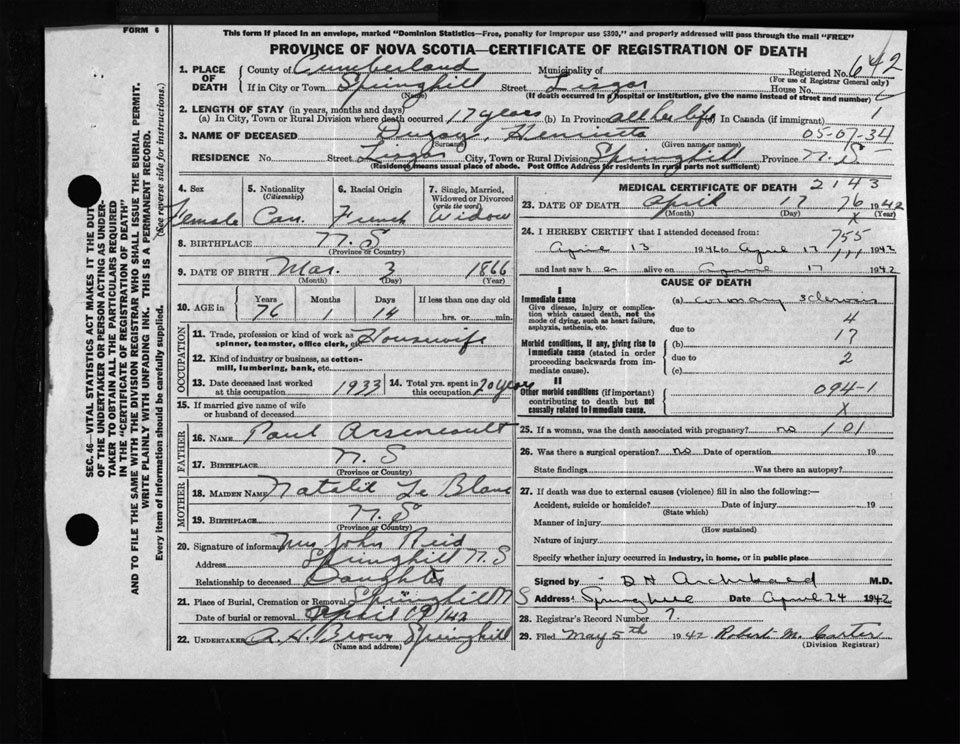 FORM 6
This form if placed in an envelope, marked "Dominion Statistics—Free, penalty for improper use $300," and properly addressed will pass through the mail "FREE"
PROVINCE OF NOVA SCOTIA—CERTIFICATE OF REGISTRATION OF DEATH
1. PLACE OF DEATH
County of Cumberland Municipality of Registered No. 642
(For use of Registrar General only)
If in City or Town Springhill Street House No.
(Name) (If death occurred in a hospital or institution, give the name instead of street and number)
2. LENGTH OF STAY (in years, months and days)
(a) In City, Town or Rural Division where death occurred 17 years (b) In Province all her life (c) In Canada (if immigrant)
3. NAME OF DECEASED Henrietta 05-07-34
(Surname) (Given name or names)
RESIDENCE No. Street City, Town or Rural Division Springhill Province N.S
(Residence means usual place of abode. Post Office Address for residents in rural parts not sufficient)
4. Sex Female
5. Nationality (Citizenship) Can.
6. Racial Origin French
7. Single, Married, Widowed or Divorced (write the word) Widow
8. BIRTHPLACE N.S
(Province or Country)
9. DATE OF BIRTH Mar. 3 1866
(Month) (Day) (Year)
10. AGE in Years 76 Months 1 Days 14 If less than one day old hrs. or min.
OCCUPATION
11. Trade, profession or kind of work as spinner, teamster, office clerk, etc. Housewife
12. Kind of industry or business, as cotton-mill, lumbering, bank, etc.
13. Date deceased last worked at this occupation 1933
14. Total yrs. spent in this occupation 70 years
15. If married give name of wife or husband of deceased
FATHER
16. NAME Paul Arseneault
17. BIRTHPLACE N.S
(Province or Country)
MOTHER
18. MAIDEN NAME Natalie Le Blanc
19. BIRTHPLACE N.S
(Province or Country)
20. Signature of informant Mrs John Reid
Address Springhill N.S
Relationship to deceased Daughter
21. Place of Burial, Cremation or Removal Springhill N S
Date of burial or removal April 19/42
22. UNDERTAKER A. H. Brown Springhill
(Name and address)
MEDICAL CERTIFICATE OF DEATH 2143
23. DATE OF DEATH April 17 76 1942
(Month) (Day) X (Year)
24. I HEREBY CERTIFY that I attended deceased from: 755
April 13 1942 to April 17 1942
111
and last saw her alive on April 17 1942
CAUSE OF DEATH
I
Immediate cause
Give disease, injury or complication which caused death, not the mode of dying, such as heart failure, asphyxia, asthenia, etc.
(a) coronary sclerosis
4
due to
Morbid conditions, if any, giving rise to immediate cause (stated in order proceeding backwards from immediate cause).
(b) 17
due to 2
(c)
II
Other morbid conditions (if important) contributing to death but not causally related to immediate cause.
094-1
X
25. If a woman, was the death associated with pregnancy? no 101
26. Was there a surgical operation? no Date of operation 19
State findings Was there an autopsy?
27. If death was due to external causes (violence) fill in also the following:—
Accident, suicide or homicide? Date of injury 19
(State which)
Manner of injury
(How sustained)
Nature of injury
Specify whether injury occurred in industry, in home, or in public place
Signed by D H Archibald M.D.
Address Springhill Date April 24 1942
28. Registrar's Record Number 7.
29. Filed May 5th 1942 Robert M. Carter
(Division Registrar)
SEC. 46—VITAL STATISTICS ACT MAKES IT THE DUTY
OF THE UNDERTAKER OR PERSON ACTING AS UNDER-
TAKER TO OBTAIN ALL THE PARTICULARS REQUIRED
IN THE "CERTIFICATE OF REGISTRATION OF DEATH"
AND TO FILE THE SAME WITH THE DIVISION REGISTRAR WHO SHALL ISSUE THE BURIAL PERMIT.
WRITE PLAINLY WITH UNFADING INK. THIS IS A PERMANENT RECORD.
Every item of information should be carefully supplied. (See reverse side for instructions.)